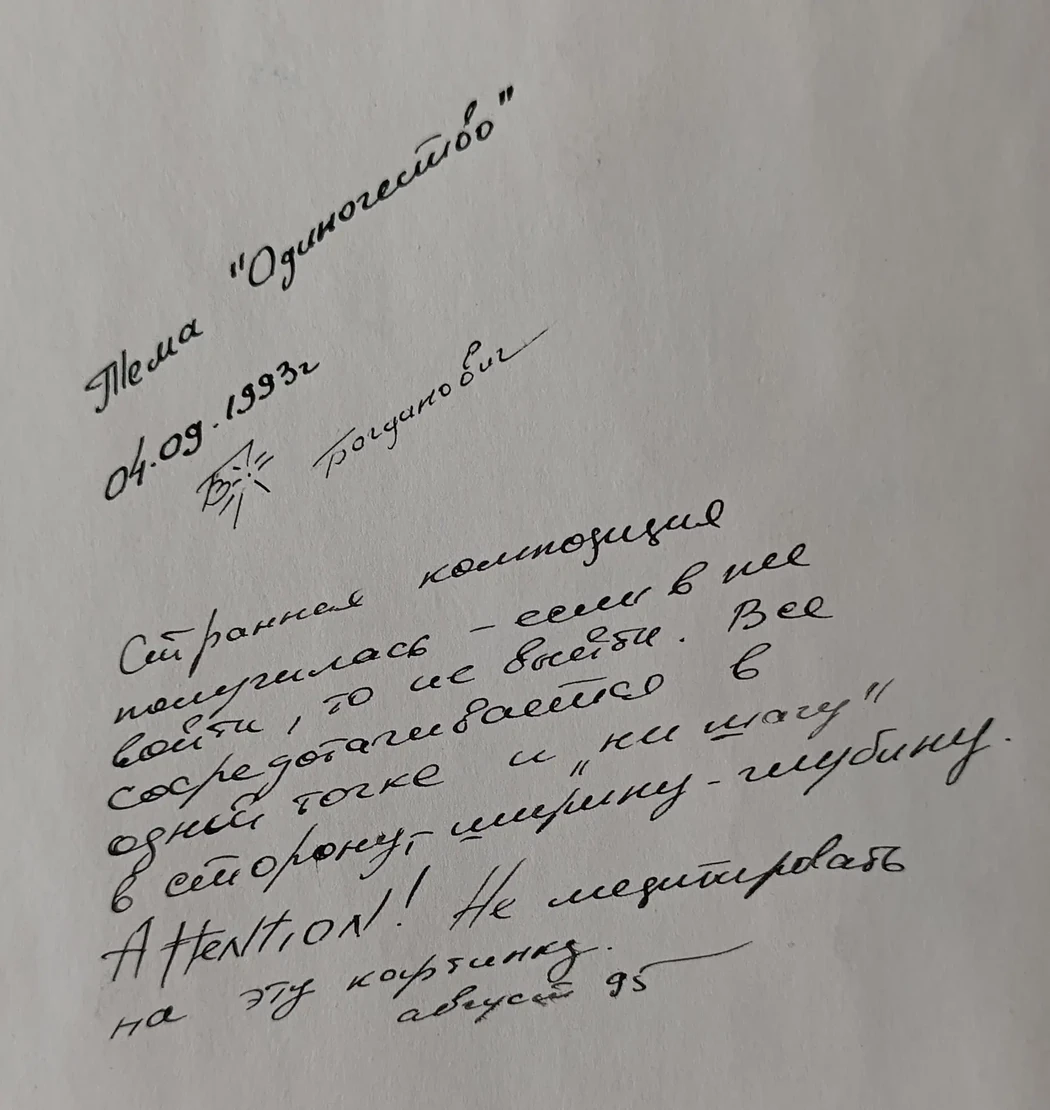 Тема "Одиночество"
04.09.1993г
В Богданович
Странная композиция
получилась – если в нее
войти, то не выйти. Все
сосредотачивается в
одной точке и "ни шагу"
в сторону, – ширину – глубину.
Attention! Не медитировать
на эту картинку.
август 95